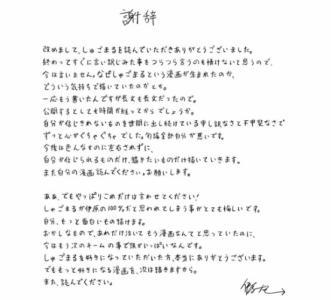 謝辞
改めまして、しゅごまるを読んでいただきありがとうございました。
終わってすぐに言い訳じみた事をつらつら言うのも情けないと思うので、
今は言いません。なぜしゅごまるという漫画が生まれたのか、
どういう気持ちで描いていたのかとか。
一応もう書いたんですが長文も長文だったので。
公開するとしても時間が経ってからでしょうか。
自分が信じきれないものを世間に出し続けている申し訳なさと不甲斐なさで
ずっと心がぐちゃぐちゃでした。勿論全部自分が悪いです。
今後は色んなものに左右されずに、
自分が信じられるものだけ、描きたいものだけ描いていきます。
また自分の漫画読んでください。お願いします。
ああ、でもやっぱりこれだけは言わせてください！
しゅごまるが伊原の100%だと思われてしまう事がとても悔しいです。
自分、もっと面白いもの描けます。
おかしなもので、あれだけ泣いてもう漫画なんてと思っていたのに、
今はもう次のネームの事で頭がいっぱいなんです。
しゅごまるを好きになっていただいた方、本当にありがとうございます。
でももっと好きになる漫画を、次は描きますから。
また、読んでください。